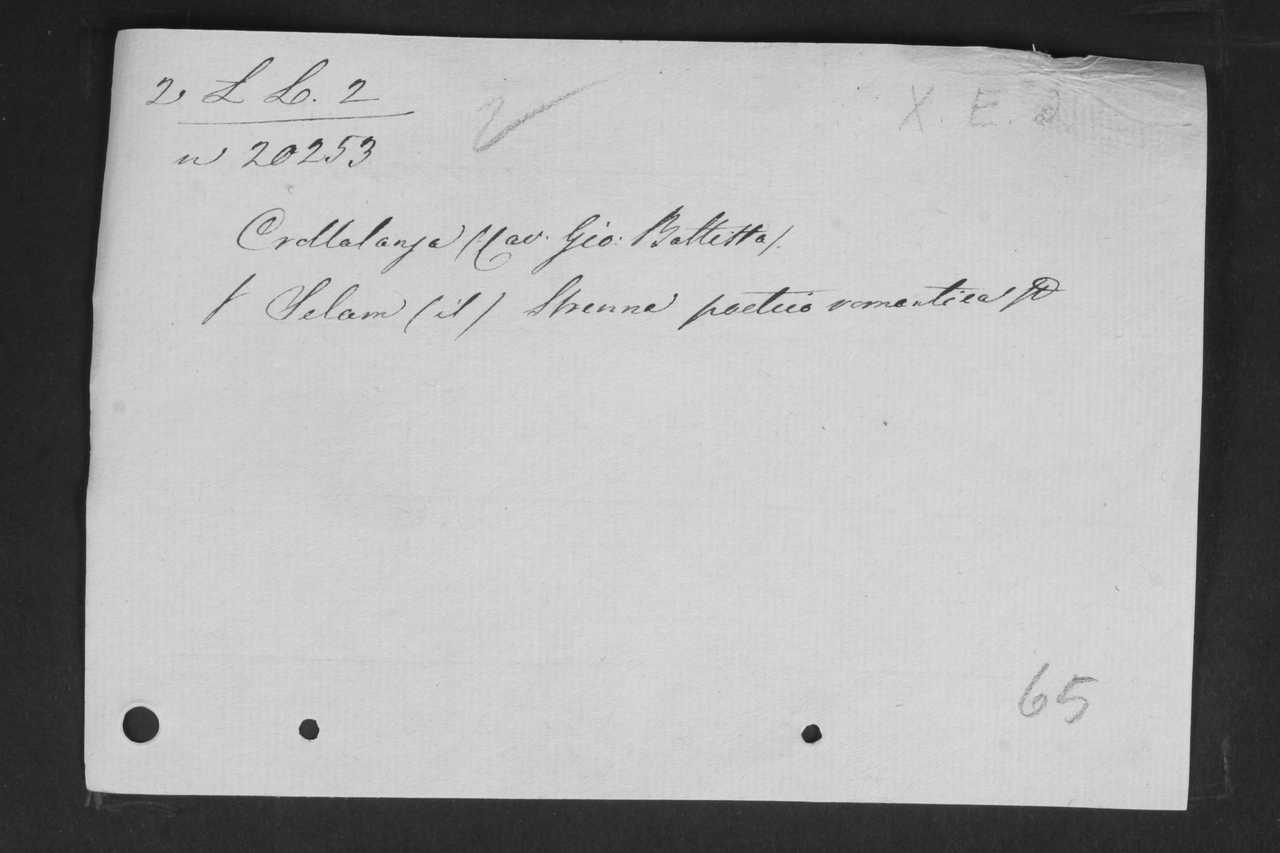 2 L L. 2
X. E.
n 20253
Crollalanza (Cav. Gio: Battista).
Selam (il) Strenna poetico romantica
65